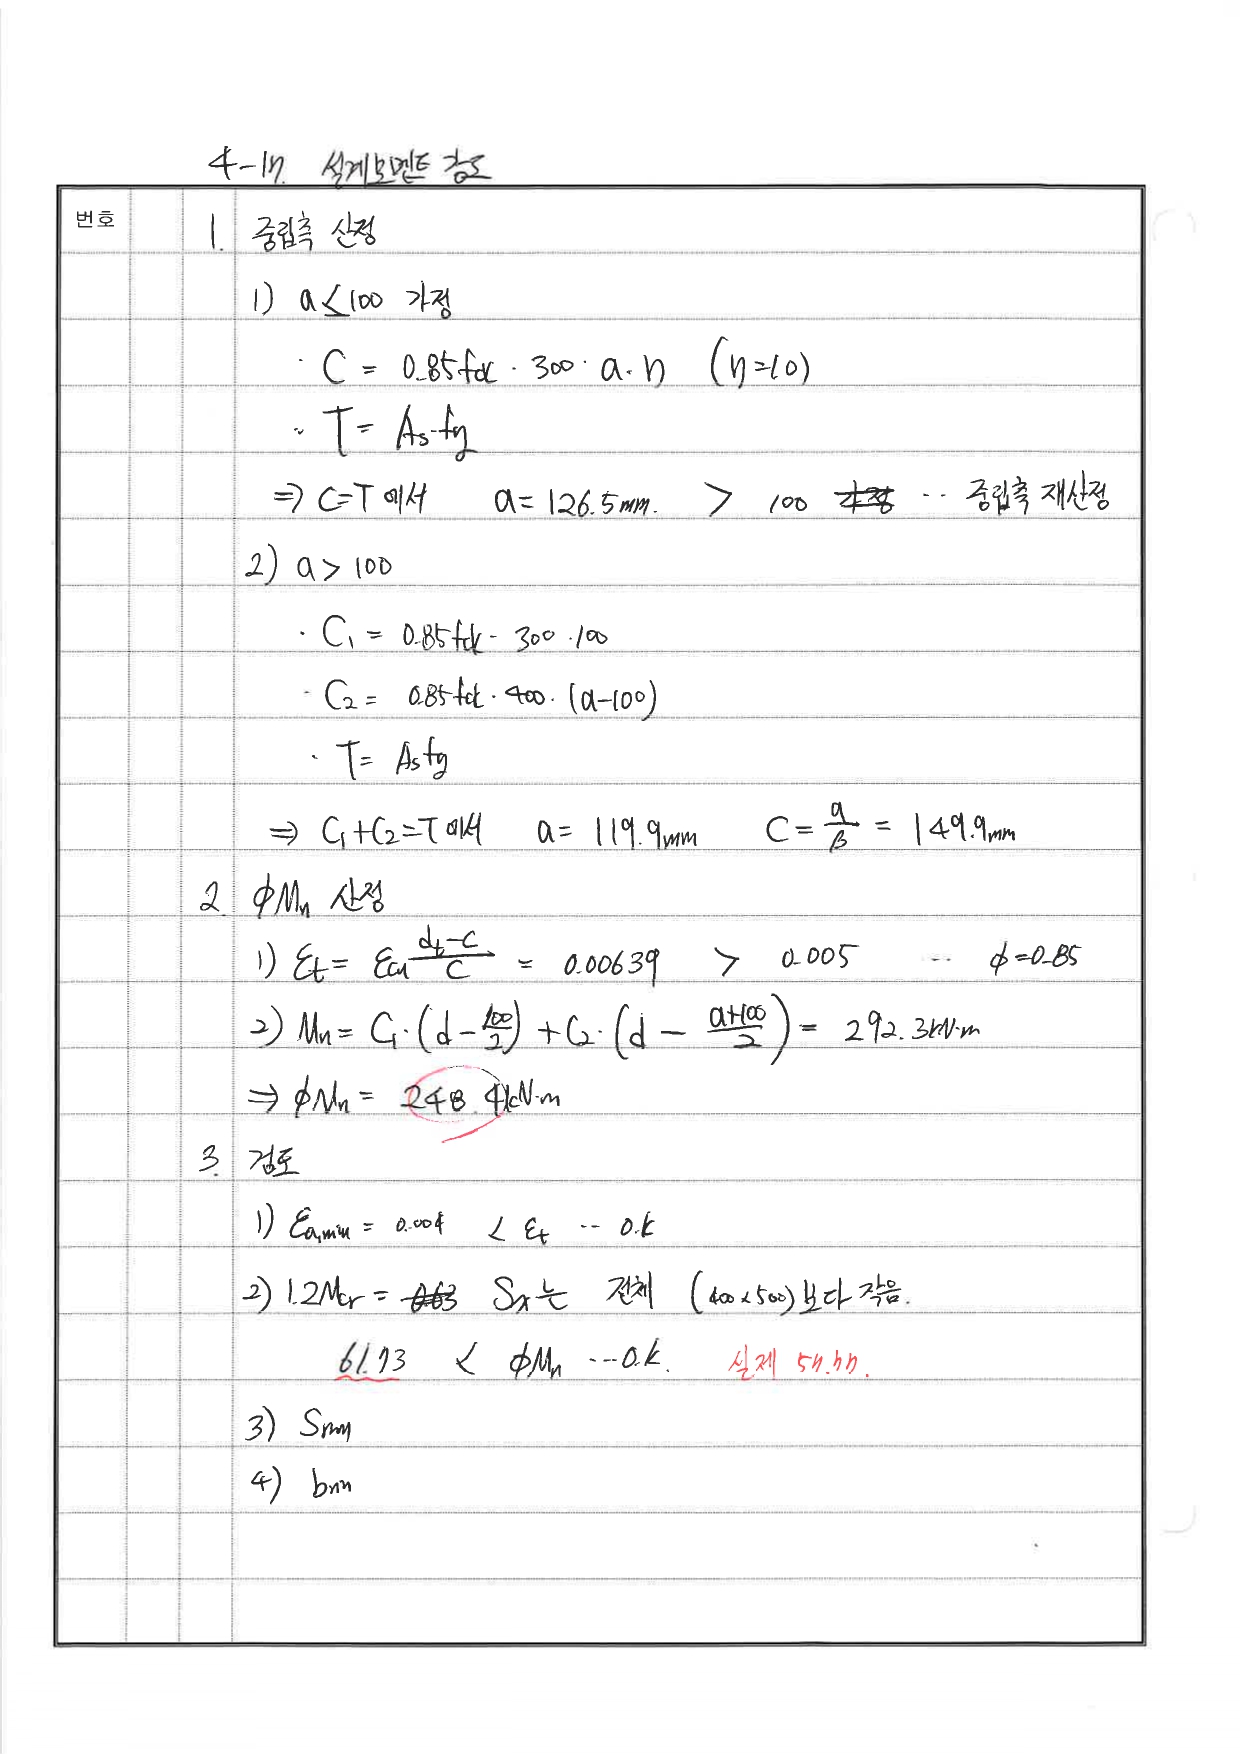 4-17. 설계모멘트 강도
번호
1. 중립축 산정
1) a≤100 가정
· C = 0.85fck · 300 · a · η (η=1.0)
· T = As·fy
⇒ C=T 에서 a = 126.5mm. > 100 ·· 중립축 재산정
2) a > 100
· C₁ = 0.85fck · 300 · 100
· C₂ = 0.85fck · 400 · (a-100)
· T = Asfy
⇒ C₁+C₂=T 에서 a = 119.9mm C = a/β = 149.9mm
2. φMn 산정
1) εt = εcu (dt-c)/c = 0.00639 > 0.005 ·· φ=0.85
2) Mn = C₁·(d - 100/2) + C₂·(d - (a+100)/2) = 292.3kN·m
⇒ φMn = 248.4kN·m
3. 검토
1) εa,min = 0.004 < εt ·· O.K
2) 1.2Mcr = Sx는 전체 (400x500)보다 작음.
61.73 < φMn ··· O.K. 실제
3) Smin
4) bmin